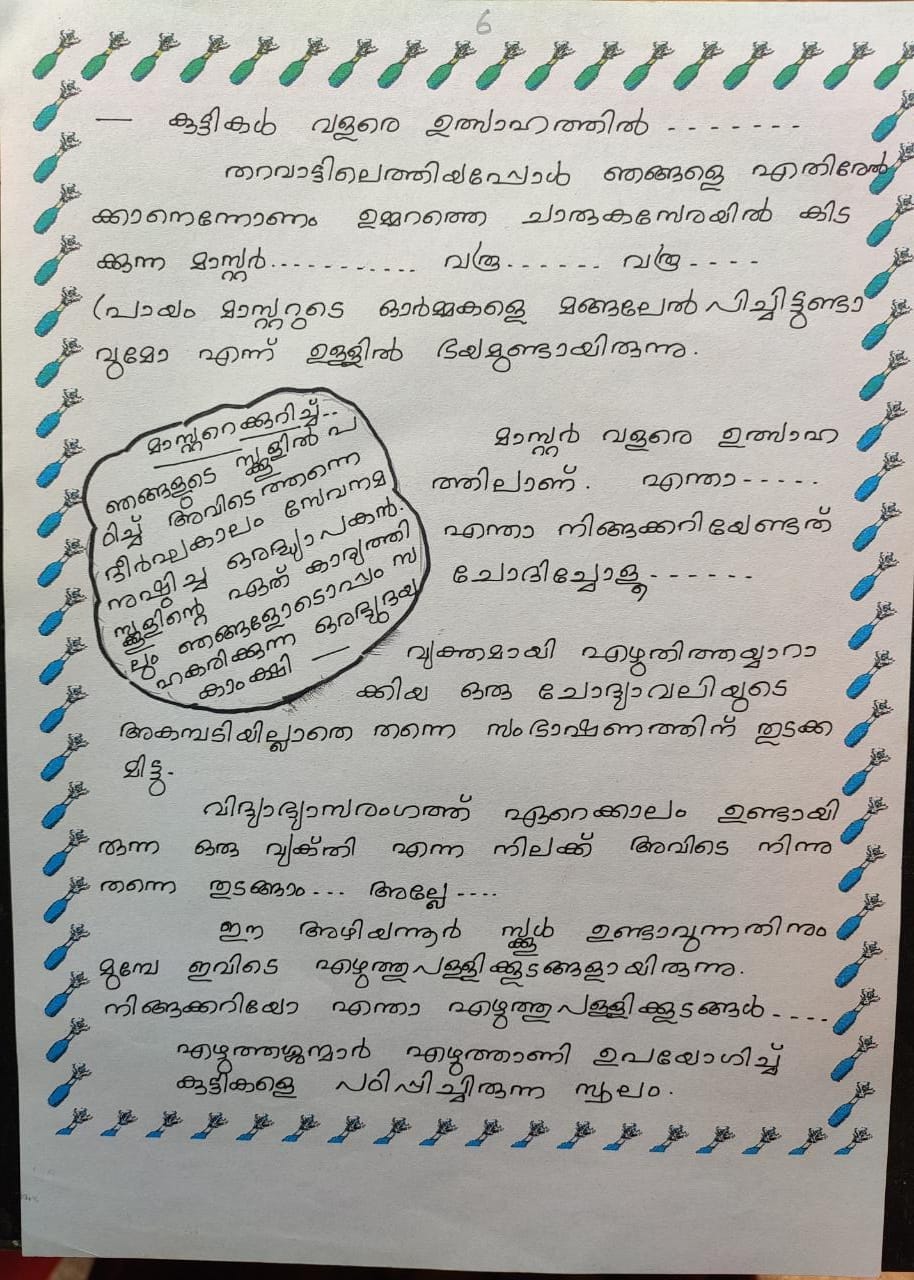 6
— കുട്ടികൾ വളരെ ഉത്സാഹത്തിൽ - - - - - - -
തറവാട്ടിലെത്തിയപ്പോൾ ഞങ്ങളെ എതിരേൽ
ക്കാനെന്നോണം ഉമ്മറത്തെ ചാരുകസേരയിൽ കിട
ക്കുന്ന മാസ്റ്റർ............ വരൂ...... വരൂ - - - -
(പ്രായം മാസ്റ്ററുടെ ഓർമ്മകളെ മങ്ങലേൽപിച്ചിട്ടുണ്ടാ
വുമോ എന്ന് ഉള്ളിൽ ഭയമുണ്ടായിരുന്നു.
മാസ്റ്ററെക്കുറിച്ച്..
ഞങ്ങളുടെ സ്കൂളിൽ പ
ഠിച്ച് അവിടെത്തന്നെ
ദീർഘകാലം സേവനമ
നുഷ്ഠിച്ച ഒരദ്ധ്യാപകൻ.
സ്കൂളിന്റെ ഏത് കാര്യത്തി
ലും ഞങ്ങളോടൊപ്പം സ
ഹകരിക്കുന്ന ഒരഭ്യുദയ
കാംക്ഷി —
മാസ്റ്റർ വളരെ ഉത്സാഹ
ത്തിലാണ്. എന്താ-----.
എന്താ നിങ്ങക്കറിയേണ്ടത്
ചോദിച്ചോളൂ------
വ്യക്തമായി എഴുതിത്തയ്യാറാ
ക്കിയ ഒരു ചോദ്യാവലിയുടെ
അകമ്പടിയില്ലാതെ തന്നെ സംഭാഷണത്തിന് തുടക്ക
മിട്ടു.
വിദ്യാഭ്യാസരംഗത്ത് ഏറെക്കാലം ഉണ്ടായി
രുന്ന ഒരു വ്യക്തി എന്ന നിലക്ക് അവിടെ നിന്നു
തന്നെ തുടങ്ങാം--- അല്ലേ----
ഈ അഴിയന്നൂർ സ്ക്കൂൾ ഉണ്ടാവുന്നതിനും
മുമ്പേ ഇവിടെ എഴുത്തുപള്ളിക്കൂടങ്ങളായിരുന്നു.
നിങ്ങക്കറിയോ എന്താ എഴുത്തുപള്ളിക്കൂടങ്ങൾ----
എഴുത്തശ്ശന്മാർ എഴുത്താണി ഉപയോഗിച്ച്
കുട്ടികളെ പഠിപ്പിച്ചിരുന്ന സ്ഥലം.